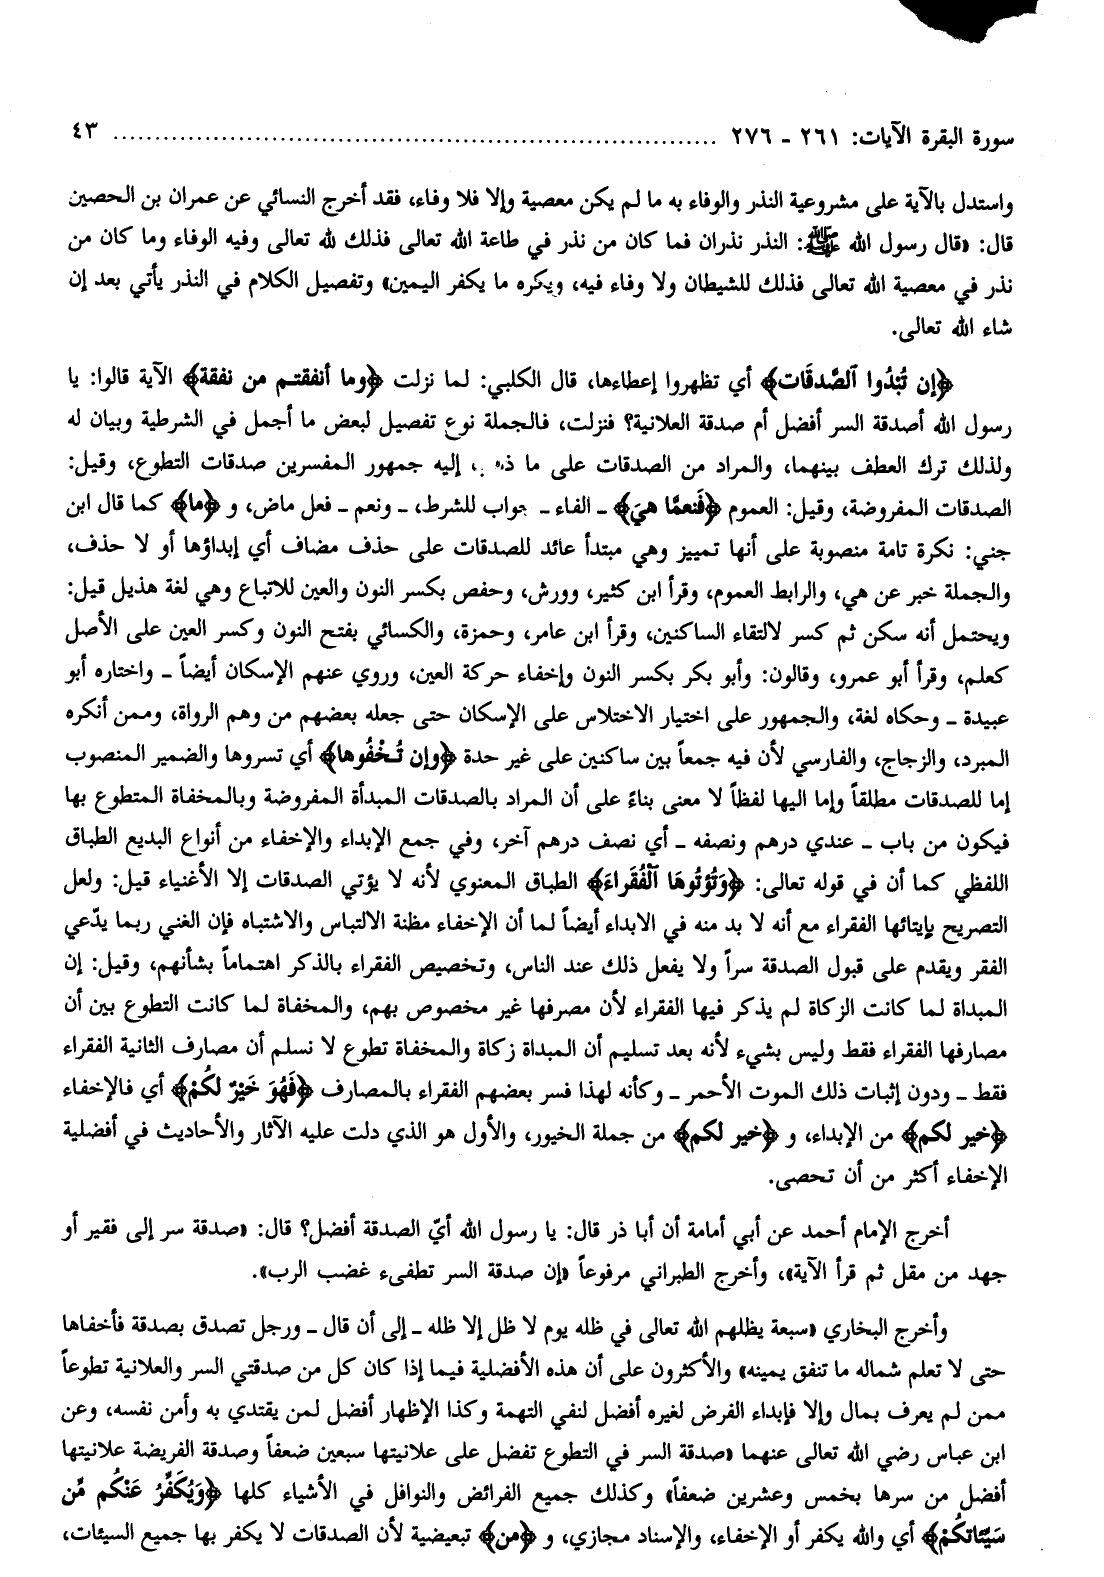 سورة البقرة الآيات: ٢٦١ ـ ٢٧٦ .......................................................................... ٤٣
واستدل بالآية على مشروعية النذر والوفاء به ما لم يكن معصية وإلا فلا وفاء، فقد أخرج النسائي عن عمران بن الحصين
قال: «قال رسول الله ﷺ: النذر نذران فما كان من نذر في طاعة الله تعالى فذلك لله تعالى وفيه الوفاء وما كان من
نذر في معصية الله تعالى فذلك للشيطان ولا وفاء فيه، ويكره ما يكفر اليمين» وتفصيل الكلام في النذر يأتي بعد إن
شاء الله تعالى.
﴿إن تُبْدُوا ٱلصَّدقَات﴾ أي تظهروا إعطاءها، قال الكلبي: لما نزلت ﴿وما أنفقتم من نفقة﴾ الآية قالوا: يا
رسول الله أصدقة السر أفضل أم صدقة العلانية؟ فنزلت، فالجملة نوع تفصيل لبعض ما أجمل في الشرطية وبيان له
ولذلك ترك العطف بينهما، والمراد من الصدقات على ما إليه جمهور المفسرين صدقات التطوع، وقيل:
الصدقات المفروضة، وقيل: العموم ﴿فَنعمَّا هيَ﴾ ـ الفاء ـ جواب للشرط، ـ ونعم ـ فعل ماض، و ﴿ما﴾ كما قال ابن
جني: نكرة تامة منصوبة على أنها تمييز وهي مبتدأ عائد للصدقات على حذف مضاف أي إبداؤها أو لا حذف،
والجملة خبر عن هي، والرابط العموم، وقرأ ابن كثير، وورش، وحفص بكسر النون والعين للاتباع وهي لغة هذيل قيل:
ويحتمل أنه سكن ثم كسر لالتقاء الساكنين، وقرأ ابن عامر، وحمزة، والكسائي بفتح النون وكسر العين على الأصل
كعلم، وقرأ أبو عمرو، وقالون: وأبو بكر بكسر النون وإخفاء حركة العين، وروي عنهم الإسكان أيضاً ـ واختاره أبو
عبيدة ـ وحكاه لغة، والجمهور على اختيار الاختلاس على الإسكان حتى جعله بعضهم من وهم الرواة، وممن أنكره
المبرد، والزجاج، والفارسي لأن فيه جمعاً بين ساكنين على غير حدة ﴿وإن تُخْفُوها﴾ أي تسروها والضمير المنصوب
إما للصدقات مطلقاً وإما اليها لفظاً لا معنى بناءً على أن المراد بالصدقات المبدأة المفروضة وبالمخفاة المتطوع بها
فيكون من باب ـ عندي درهم ونصفه ـ أي نصف درهم آخر، وفي جمع الإبداء والإخفاء من أنواع البديع الطباق
اللفظي كما أن في قوله تعالى: ﴿وَتُؤتُوهَا ٱلْفُقَراءَ﴾ الطباق المعنوي لأنه لا يؤتي الصدقات إلا الأغنياء قيل: ولعل
التصريح بإيتائها الفقراء مع أنه لا بد منه في الابداء أيضاً لما أن الإخفاء مظنة الالتباس والاشتباه فإن الغني ربما يدّعي
الفقر ويقدم على قبول الصدقة سراً ولا يفعل ذلك عند الناس، وتخصيص الفقراء بالذكر اهتماماً بشأنهم، وقيل: إن
المبداة لما كانت الزكاة لم يذكر فيها الفقراء لأن مصرفها غير مخصوص بهم، والمخفاة لما كانت التطوع بين أن
مصارفها الفقراء فقط وليس بشيء لأنه بعد تسليم أن المبداة زكاة والمخفاة تطوع لا نسلم أن مصارف الثانية الفقراء
فقط ـ ودون إثبات ذلك الموت الأحمر ـ وكأنه لهذا فسر بعضهم الفقراء بالمصارف ﴿فَهُوَ خَيْرٌ لكُمْ﴾ أي فالإخفاء
﴿خير لكم﴾ من الإبداء، و ﴿خير لكم﴾ من جملة الخيور، والأول هو الذي دلت عليه الآثار والأحاديث في أفضلية
الإخفاء أكثر من أن تحصى.
أخرج الإمام أحمد عن أبي أمامة أن أبا ذر قال: يا رسول الله أيّ الصدقة أفضل؟ قال: «صدقة سر إلى فقير أو
جهد من مقل ثم قرأ الآية»، وأخرج الطبراني مرفوعاً «إن صدقة السر تطفىء غضب الرب».
وأخرج البخاري «سبعة يظلهم الله تعالى في ظله يوم لا ظل إلا ظله ـ إلى أن قال ـ ورجل تصدق بصدقة فأخفاها
حتى لا تعلم شماله ما تنفق يمينه» والأكثرون على أن هذه الأفضلية فيما إذا كان كل من صدقتي السر والعلانية تطوعاً
ممن لم يعرف بمال وإلا فإبداء الفرض لغيره أفضل لنفي التهمة وكذا الإظهار أفضل لمن يقتدي به وأمن نفسه، وعن
ابن عباس رضي الله تعالى عنهما «صدقة السر في التطوع تفضل على علانيتها سبعين ضعفاً وصدقة الفريضة علانيتها
أفضل من سرها بخمس وعشرين ضعفاً» وكذلك جميع الفرائض والنوافل في الأشياء كلها ﴿وَيُكَفِّرُ عَنْكُم مِّن
سَيِّئاتكُمْ﴾ أي والله يكفر أو الإخفاء، والإسناد مجازي، و ﴿من﴾ تبعيضية لأن الصدقات لا يكفر بها جميع السيئات،